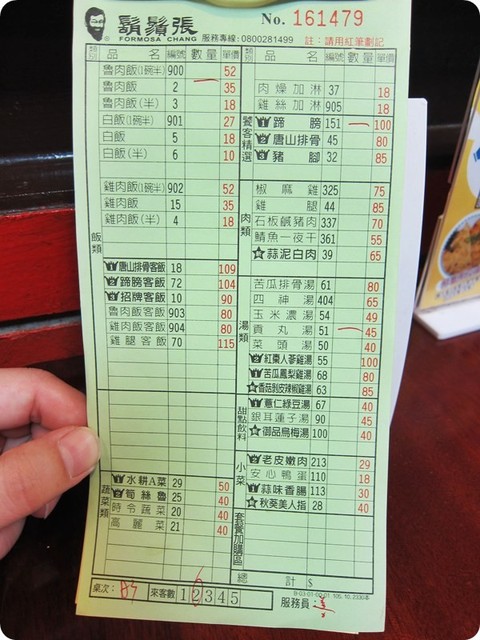 鬍鬚張 No. 161479
FORMOSA CHANG 服務專線:0800281499 註:請用紅筆劃記
類別 品名 編號 數量 單價
飯類
魯肉飯(1碗半) 900 52
魯肉飯 2 35
魯肉飯(半) 3 18
白飯(1碗半) 901 27
白飯 5 18
白飯(半) 6 10
雞肉飯(1碗半) 902 52
雞肉飯 15 35
雞肉飯(半) 4 18
1 唐山排骨客飯 18 109
2 蹄膀客飯 72 104
3 招牌客飯 10 90
魯肉飯客飯 903 80
雞肉飯客飯 904 80
雞腿客飯 70 115
蔬菜類
1 水耕A菜 29 50
2 筍絲魯 25 40
時令蔬菜 20 40
高麗菜 21 40
類別 品名 編號 數量 單價
肉燥加淋 37 18
雞絲加淋 905 18
饕客精選
1 蹄膀 151 100
2 唐山排骨 45 80
3 豬腳 32 85
肉類
椒麻雞 325 75
雞腿 44 85
石板鹹豬肉 337 70
鯖魚一夜干 361 55
蒜泥白肉 39 65
湯類
苦瓜排骨湯 61 80
四神湯 404 65
玉米濃湯 54 49
貢丸湯 51 45
菜頭湯 50 40
紅棗人蔘雞湯 55 100
苦瓜鳳梨雞湯 68 80
香菇剝皮辣椒雞湯 63 85
甜點飲料
1 薏仁綠豆湯 67 40
銀耳蓮子湯 90 45
御品烏梅湯 100 40
小菜
老皮嫩肉 213 29
安心鴨蛋 110 18
1 蒜味香腸 113 30
秋葵美人指 28 40
套餐加購區
總計 $
桌次: 來客數 1 2 3 4 5 服務員: